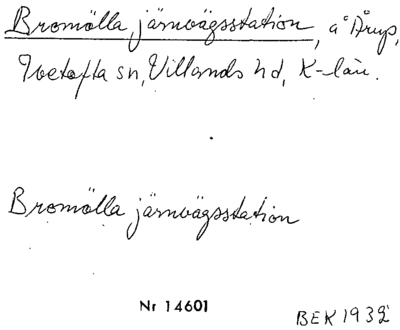 Bromölla järnvägsstation, å Årup,
Ivetofta sn, Villands hd, K-län.
Bromölla järnvägsstation
Nr 14601
BEK 1932